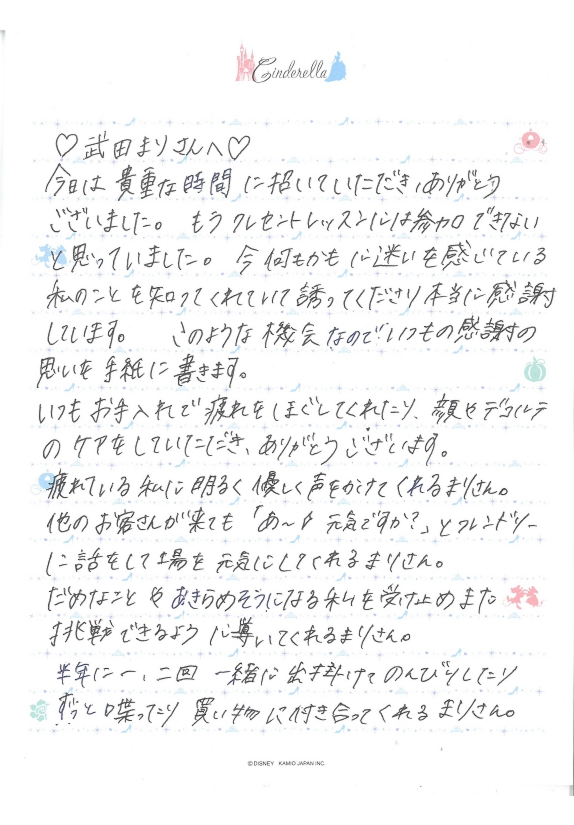 Cinderella
♡武田まりさんへ♡
今日は貴重な時間に招いていただき、ありがとう
ございました。 もうクレセントレッスンには参加できない
と思っていました。 今何もかもに迷いを感じている
私のことを知ってくれていて誘ってくださり本当に感謝
しています。 このような機会なのでいつもの感謝の
思いを手紙に書きます。
いつもお手入れで疲れをほぐしてくれたり、顔やデコルテ
のケアをしていただき、ありがとうございます。
疲れている私に明るく優しく声をかけてくれるまりさん。
他のお客さんが来ても「あ〜 元気ですか?」とフレンドリー
に話をして場を元気にしてくれるまりさん。
だめなことやあきらめそうになる私を受け止めまた
挑戦できるように導いてくれるまりさん。
半年に一、二回 一緒に出掛けてのんびりしたり
ずっと喋ったり買い物に付き合ってくれるまりさん。
©DISNEY KAMIO JAPAN INC.